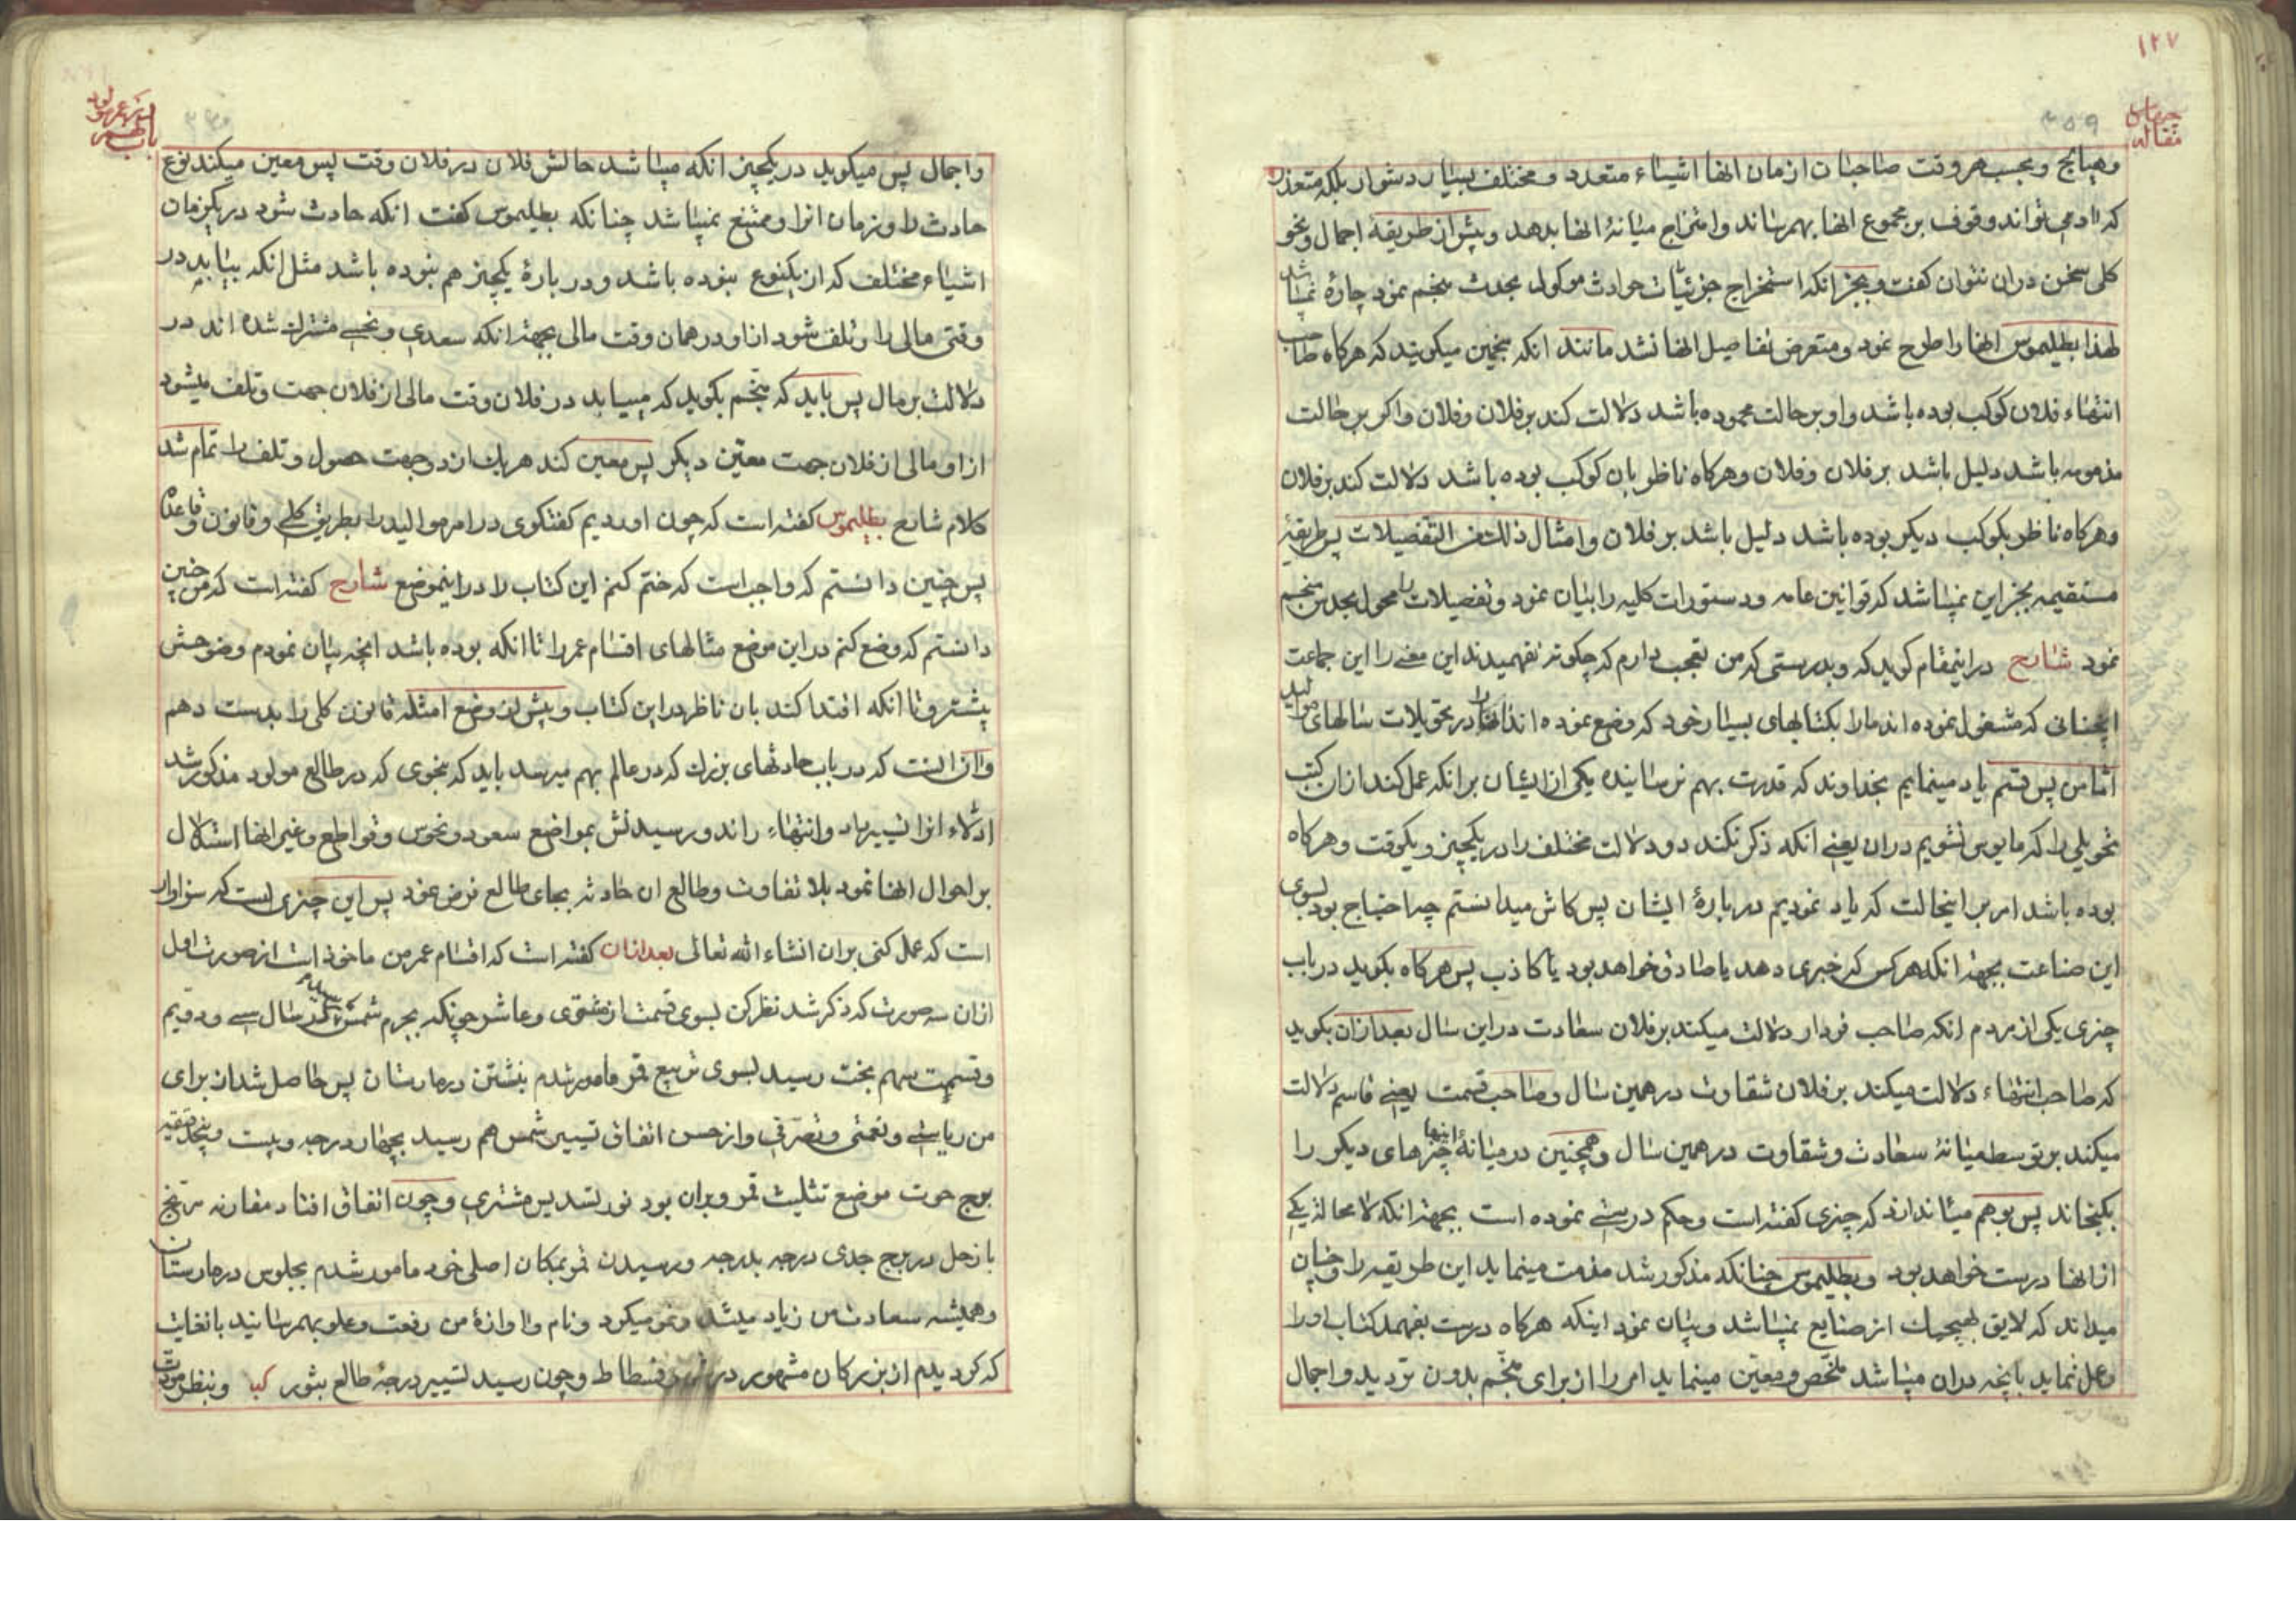 ۱۲۷
مقاله
۳۵۹
وهیلاج وبحسب هر وقت صاحبان ازمان انها اشیاء متعدد ومختلف بسیار دشوار بلکه متعذر
که ادمی تواند وقوف بر مجموع انها بهم رساند وامتزاج میانهٔ انها بدهد وپیش از طریقهٔ اجمال ونحو
کلی سخن دران نتوان کفت وبجز انکه استخراج جزئیات حوادث موکول بحدث منجم نمود چارهٔ نمیباشد
لهذا بطلیموس انها را طرح نمود ومتعرض تفاصیل انها نشد مانند انکه منجمین میکویند که هرکاه صاحب
انتهاء فلان کوکب بوده باشد واو بر حالت محموده باشد دلالت کند بر فلان وفلان واکر بر حالت
مذمومه باشد دلیل باشد بر فلان وفلان وهرکاه ناظر بان کوکب بوده باشد دلالت کند بر فلان
وهرکاه ناظر بکوکب دیکر بوده باشد دلیل باشد بر فلان وامثال ذلک من التفصیلات پس طریقهٔ
مستقیمه بجز این نمیباشد که قوانین عامه ودستورات کلیه را بیان نمود وتفصیلات را محول بحدس منجم
نمود شارح دراینمقام کوید که وبدرستی که من تعجب دارم که چکونه نفهمیدند این معنی را این جماعت
انچنانی که مشغول نموده اند مارا بکتابهای بسیار خود که وضع نموده اند انها را در تحویلات سالهای موالید
اما من پس قسم یاد مینمایم بخداوند که قدرت بهم نرسانیده یکی از ایشان بر انکه عمل کند ازان کتب
تحویلی را که مایوس نشویم دران یعنی انکه ذکر نکند دو دلالت مختلف را در یکچیز ویکوقت وهرکاه
بوده باشد امر بر اینحالت که یاد نمودیم دربارهٔ ایشان پس کاش میدانستم چه احتیاج بود بسوی
این صناعت بجهة انکه هر کس که خبری دهد یا صادق خواهد بود یا کاذب پس هرکاه بکوید در باب
چیزی یکی از مردم انکه صاحب فردار دلالت میکند بر فلان سعادت دراین سال بعد ازان بکوید
که صاحب انتهاء دلالت میکند بر فلان شقاوت در همین سال وصاحب قسمت یعنی قاسم دلالت
میکند بر توسط میانهٔ سعادت وشقاوت در همین سال وهمچنین در میانهٔ اینها چیزهای دیکر را
بکنجاند پس بوهم میاندازد که چیزی کفته است وحکم درستی نموده است بجهة انکه لا محاله یکی
از انها درست خواهد بود وبطلیموس چنانکه مذکور شد مذمت مینماید این طریقه را وچنان
میداند که لایق بهیچیک از صنایع نمیباشد وبیان نمود اینکه هرکاه درست بفهمد کتاب اورا
وعمل نماید بانچه دران میباشد ملخص ومعین مینماید امر را از برای منجم بدون تردید واجمال
باب
واجمال پس میکوید در یکچیز انکه میباشد حالش فلان در فلان وقت پس معین میکند نوع
حادث را وزمان انرا وممتنع نمیباشد چنانکه بطلیموس کفت انکه حادث شود در یکزمان
اشیاء مختلف که از یکنوع نبوده باشد ودربارهٔ یکچیز هم نبوده باشد مثل انکه بیابد در
وقتی مالی را وتلف شود از او در همان وقت مالی بجهة انکه سعدی ونحسی مشترک شده اند در
دلالت بر مال پس باید که منجم بکوید که میباید در فلان وقت مالی از فلان جهت وتلف میشود
ازاو مالی از فلان جهت معین دیکر پس معین کند هر یک از دو جهت حصول وتلف را تمام شد
کلام شارح بطلیموس کفته است که چون اوردیم کفتکوی در امر موالید را بطریق کلی وقانون وقاعده
پس چنین دانستم که واجب است که ختم کنم این کتاب را دراینموضع شارح کفته است که من چنین
دانستم که وضع کنم دراین موضع مثالهای اقسام عمر را تا انکه بوده باشد انچه بیان نمودم وضوحش
بیشتر وتا انکه اقتدا کند بان ناظر دراین کتاب وپیش از وضع امثله قانون کلی را بدست دهم
وان انست که در باب حادثهای بزرک که در عالم بهم میرسد باید که بنحوی که در طالع مولود مذکور شد
ادلاء انرا تسییر داد وانتهاء راند ورسیدنش بمواضع سعود ونحوس وقواطع وغیر انها استدلال
بر احوال انها نمود بلا تفاوت وطالع ان حادثه بجای طالع فرض نمود پس این چیزی است که سزاوار
است که عمل کنی بران انشاء الله تعالی بعد ازان کفته است که اقسام عمر من ماخوذ است از صورت اول
ازان سه صورت که ذکر شد نظر کن بسوی قسمت از مشتری وعاشر چونکه بجرم شمس رسید در سال سی ودویم
وقسمت سهم بخت رسید بسوی تربیع قمر مامور شدم بنشستن در مارستان پس حاصل شد ازبرای
من ریاستی ونعمتی وتصرفی واز حسن اتفاق تسییر شمس هم رسید بچهار درجه وبیست وپنج دقیقه
برج حوت موضع تثلیث قمر وبران بود نور تسدیس مشتری وچون اتفاق افتاد مقارنه مریخ
با زحل در برج جدی درجه بدرجه ورسیدن قمر بمکان اصلی خود مامور شدم بجلوس در مارستان
وهمیشه سعادت من زیاد میشد ونمو میکرد ونام واوازهٔ من رفعت وعلو بهمرسانید باغایت
که کردیدم از بزرکان مشهور در فسطاط وچون رسید تسییر درجهٔ طالع بثور کب وبنظر مودت